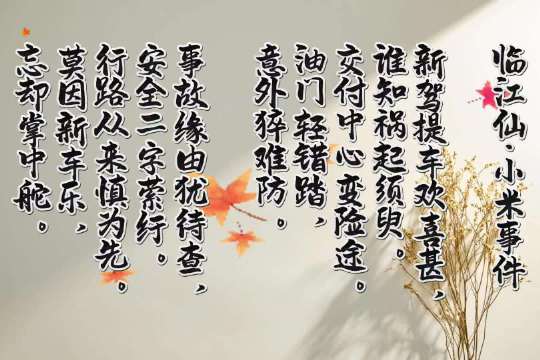 临江仙·小米事件
新驾提车欢喜甚，
谁知祸起须臾。
交付中心变险途。
油门轻错踏，
意外猝难防。
事故缘由犹待查，
安全二字萦纡。
行路从来慎为先。
莫因新车乐，
忘却掌中舵。